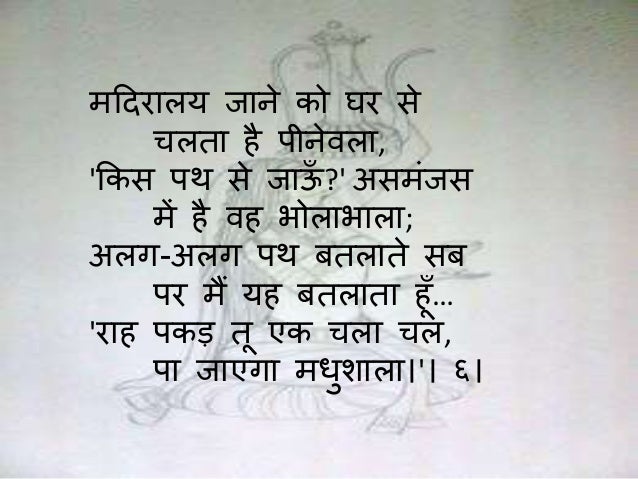 मदिरालय जाने को घर से
चलता है पीनेवला,
'किस पथ से जाऊँ?' असमंजस
में है वह भोलाभाला;
अलग-अलग पथ बतलाते सब
पर मैं यह बतलाता हूँ...
'राह पकड़ तू एक चला चल,
पा जाएगा मधुशाला।'। ६।